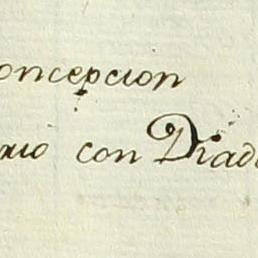 oncepcion
rio con Diad